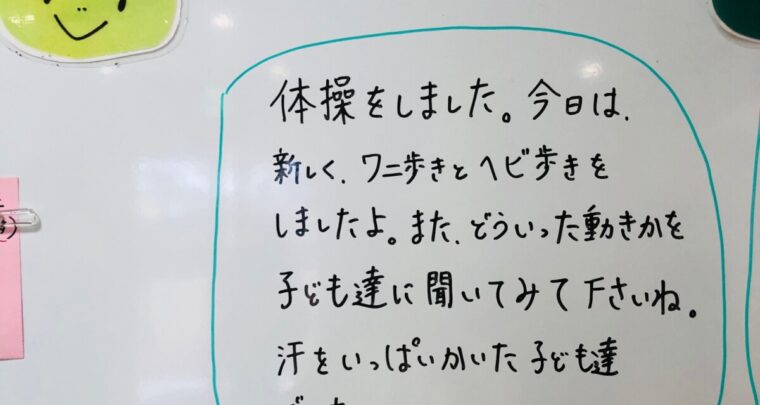 体操をしました。今日は、
新しく、ワニ歩きとヘビ歩きを
しましたよ。また、どういった動きかを
子ども達に聞いてみて下さいね。
汗をいっぱいかいた子ども達